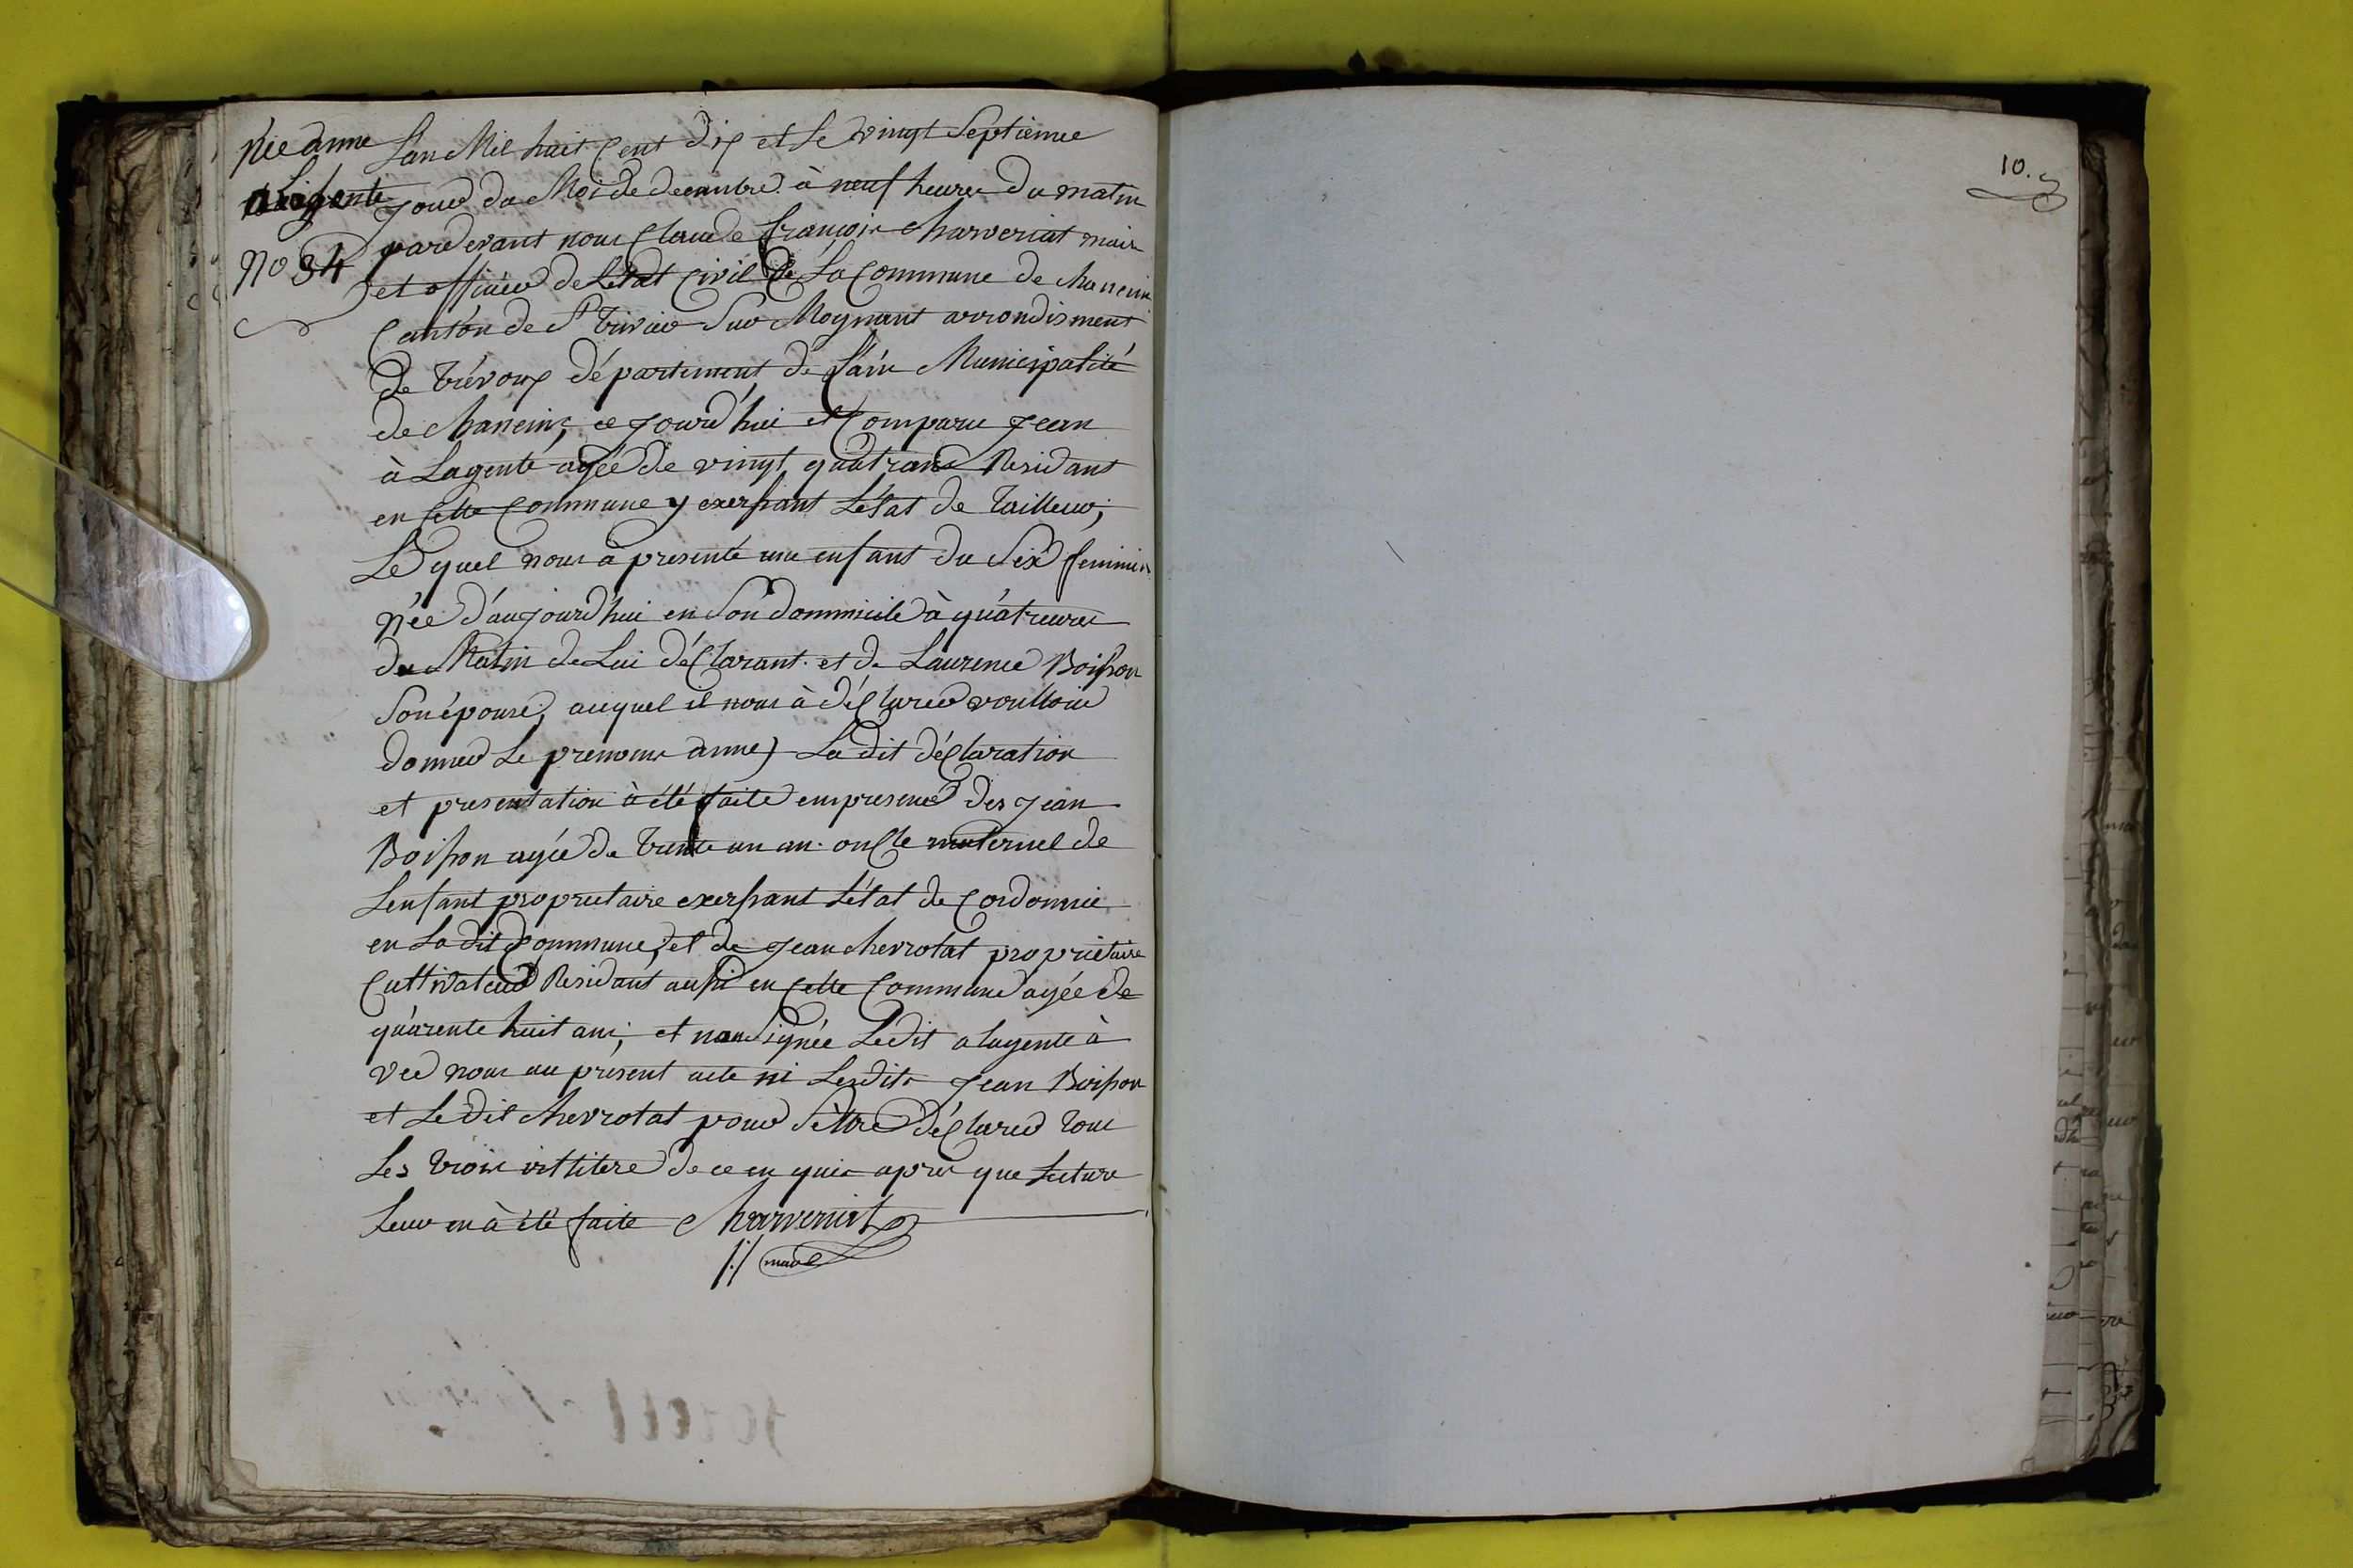 née anne
alagente
No 34
L'an Mil huit Cent dix et Le vingt Septieme
jour du Mois de decembre à neuf heures du matin
pardevant nous Claude françois Charveriat maire
et officier de L'etat Civil de La Commune de chaneins
Canton de St Trivier Sur Moignant arrondisment
de Trévoux département de L'ain Municipalité
de chaneins, ce jourd'hui est Comparu Jean
à Lagente agée de vingt quatrans Residant
en Cette Commune y exersant L'état de Tailleur;
Le quel nous à presenté une enfant du Sexe feminin
née d'aujourd'hui en Son dommicile à quatreures
du Matin de Lui déClarant. et de Laurence Boisson
Son épouse, auquel il nous à déClarer voulloir
donner Le prenoms anne, La dit déClaration
et presentation à été faite en presence des Jean
Boisson agée de Trente un an. onCle maternel de
L'enfant proprietaire exersant L'état de Cordonnie
en La dit Commune, et de Jean chevrotat propriétaire
Culltivateur Residant aussi en Cette Commune agée de
quarente huit ans; et non Signée Ledit alagente à
vec nous au present acte ni Lesdits Jean Boisson
et Le dit chevrotat pour S'être déClarer Tous
Les Trois ittitere de ce en quis apres que Lecture
Leur en à été faite Charveriat
maire
10.